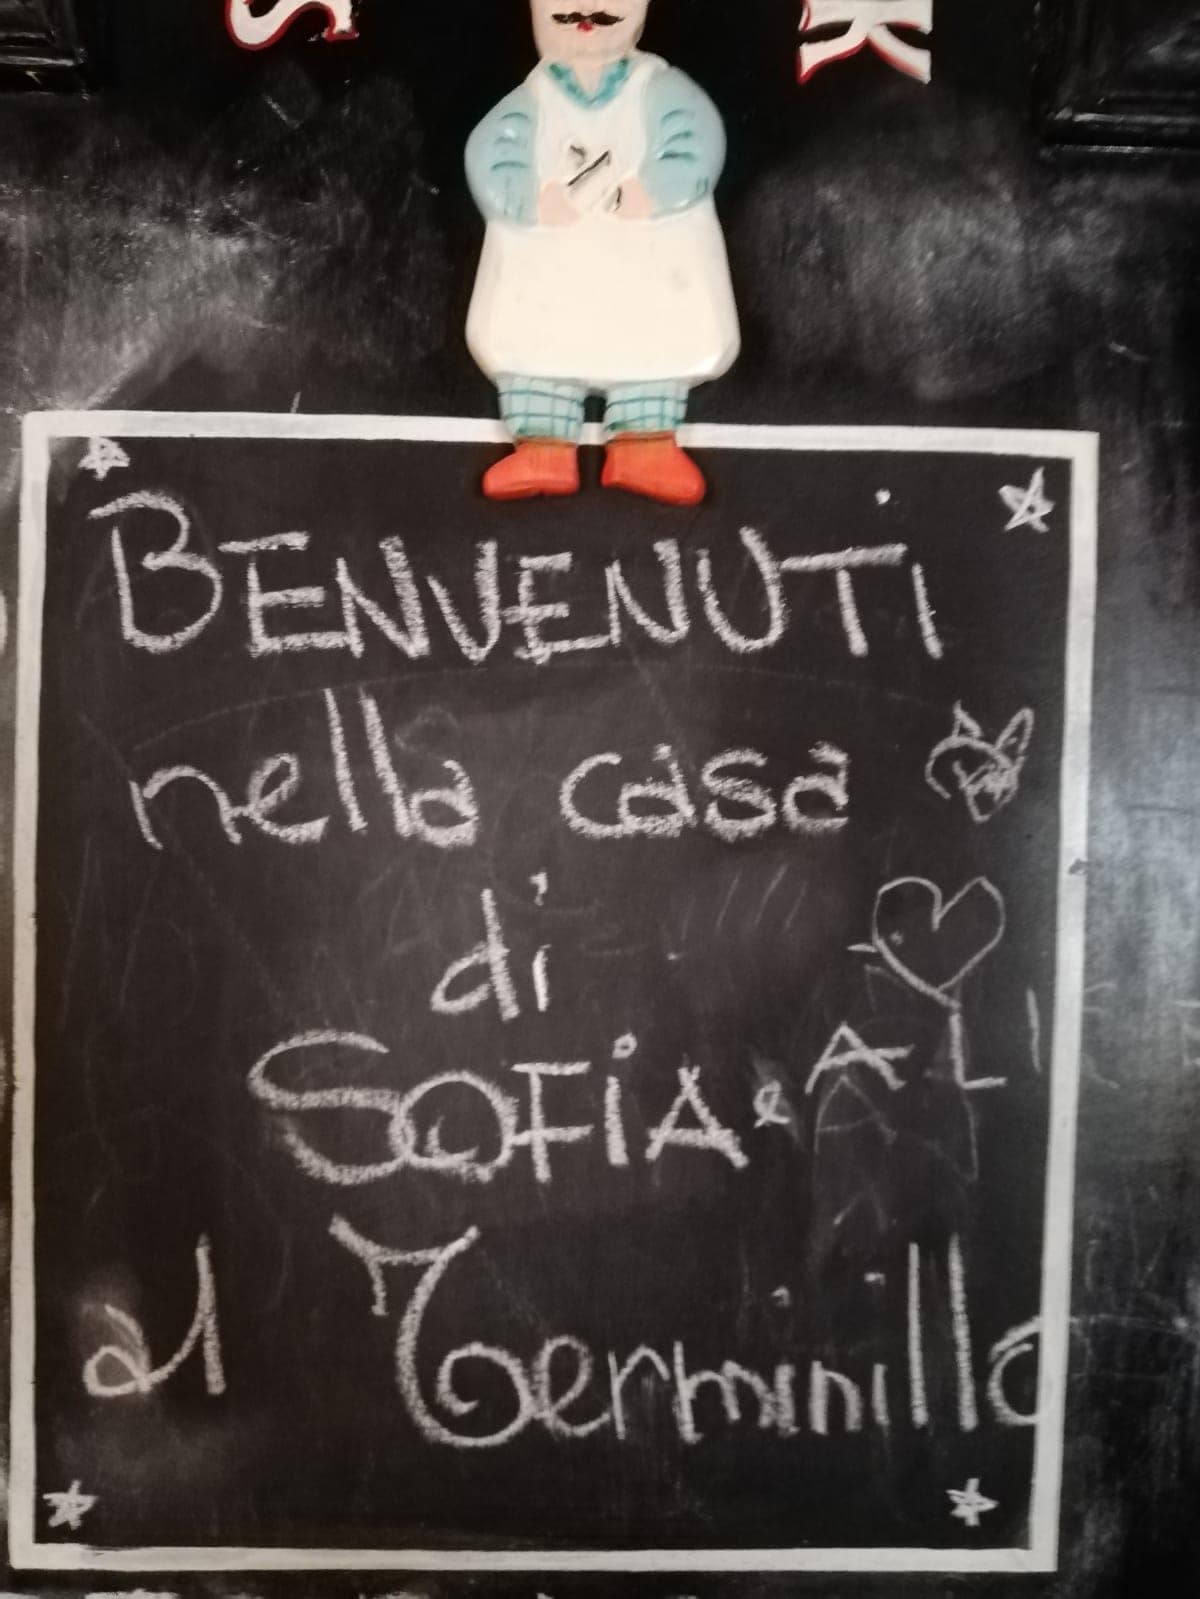 S K
BENVENUTi
nella casa
di
SOFiA e ALI
al Terminillo